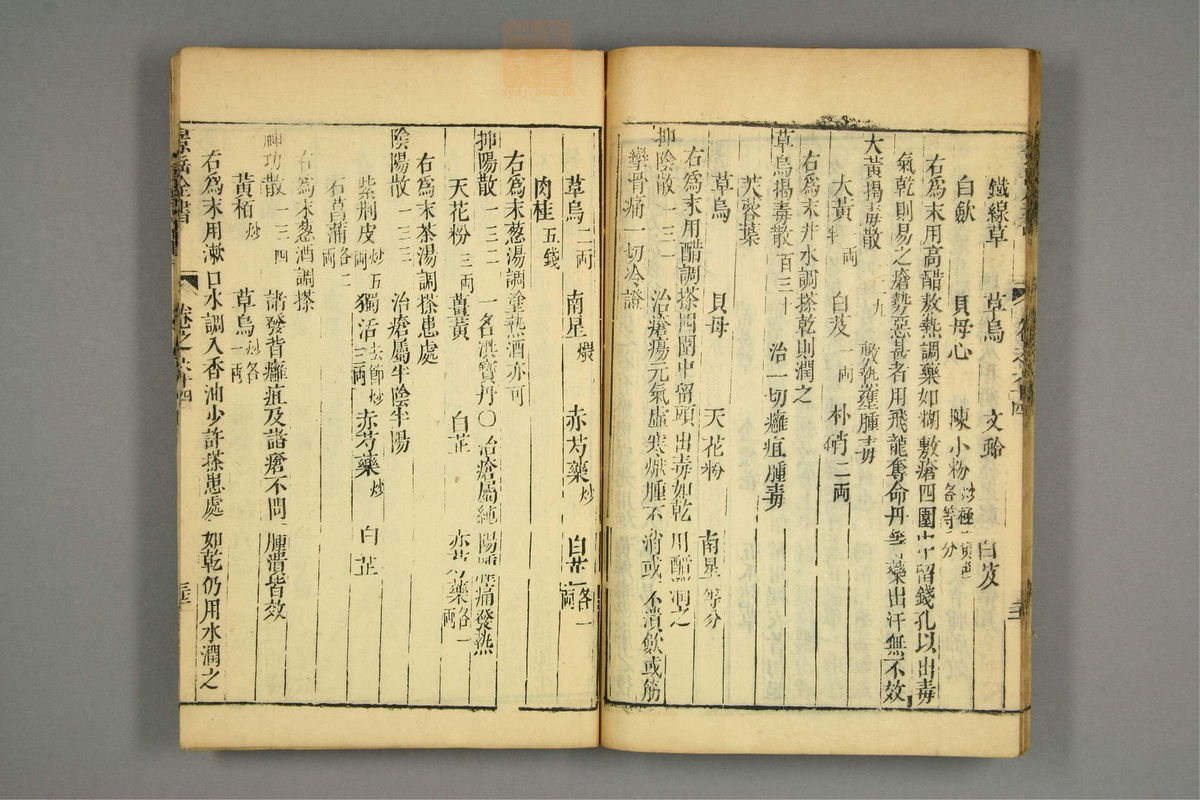 鐵線草　草烏　文蛤　白芨
白斂　貝母心　陳小粉炒極黃色各等分
右爲末用高醋熬熱調藥如糊敷瘡四圍中留錢孔以出毒
氣乾則易之瘡勢惡甚者用飛龍奪命丹等藥出汗無不效
大黃揭毒散　敷熱壅腫毒
大黃半兩　白芨一兩　朴硝二兩
右爲末井水調搽乾則潤之
草烏揭毒散百三十　治一切癰疽腫毒
芙蓉葉
草烏　貝母　天花粉　南星等分
右爲末用醋調搽四圍中留頭出毒如乾用醋潤之
抑陰散一三一　治瘡瘍元氣虛寒嫩腫不消或不潰斂或筋
攣骨痛一切冷證
草烏二兩　南星煨　赤芍藥炒　白芷各一兩
肉桂五錢
右爲末葱湯調塗熱酒亦可
抑陽散一三二　一名洪寶丹〇治瘡屬純陽腫痛發熱
天花粉三兩　薑黃　白芷　赤芍藥各一兩
右爲末茶湯調搽患處
陰陽散一三三　治瘡屬半陰半陽
紫荆皮炒五兩　獨活去節炒三兩　赤芍藥炒　白芷
石菖蒲各二兩
右爲末葱酒調搽
神功散一三四　諸發背癰疽及諸瘡不問腫潰皆效
黃栢炒　草烏炒各一兩
右爲末用漱口水調入香油少許搽患處如乾仍用水潤之
景岳全書　卷之六十四